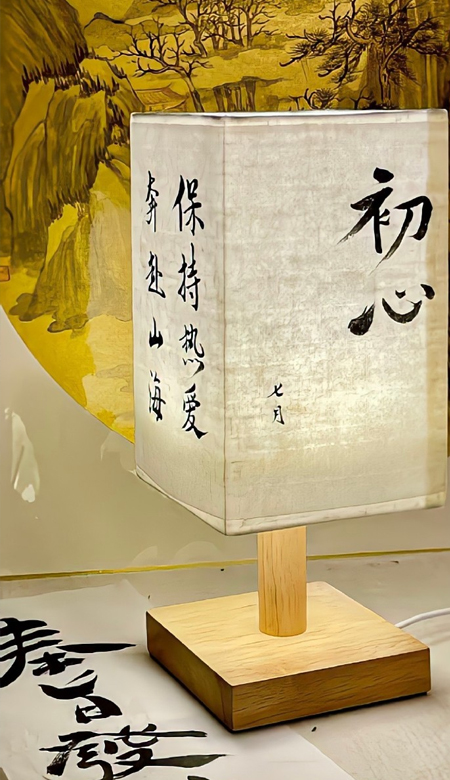 初心
七月
保持热爱
奔赴山海